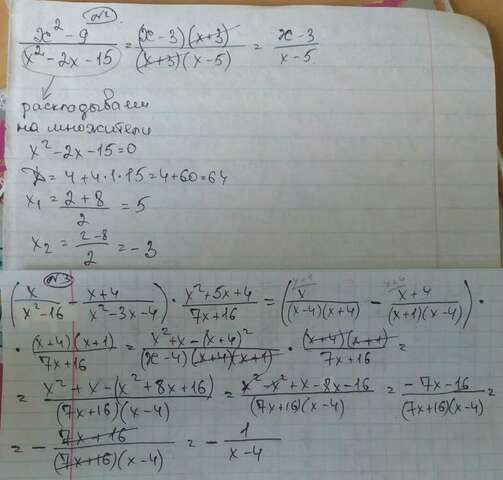 N2
x² - 9 / x² - 2x - 15 = (x - 3)(x + 3) / (x + 3)(x - 5) = x - 3 / x - 5
раскладываем
на множители
x² - 2x - 15 = 0
D = 4 + 4·1·15 = 4 + 60 = 64
x₁ = 2 + 8 / 2 = 5
x₂ = 2 - 8 / 2 = -3
N3
(x / x² - 16 - x + 4 / x² - 3x - 4) · x² + 5x + 4 / 7x + 16 = (x / (x - 4)(x + 4) - x + 4 / (x + 1)(x - 4)) ·
· (x + 4)(x + 1) / 7x + 16 = x² + x - (x + 4)² / (x - 4)(x + 4)(x + 1) · (x + 4)(x + 1) / 7x + 16 =
= x² + x - (x² + 8x + 16) / (7x + 16)(x - 4) = x² - x² + x - 8x - 16 / (7x + 16)(x - 4) = -7x - 16 / (7x + 16)(x - 4) =
= - 7x + 16 / (7x + 16)(x - 4) = - 1 / x - 4